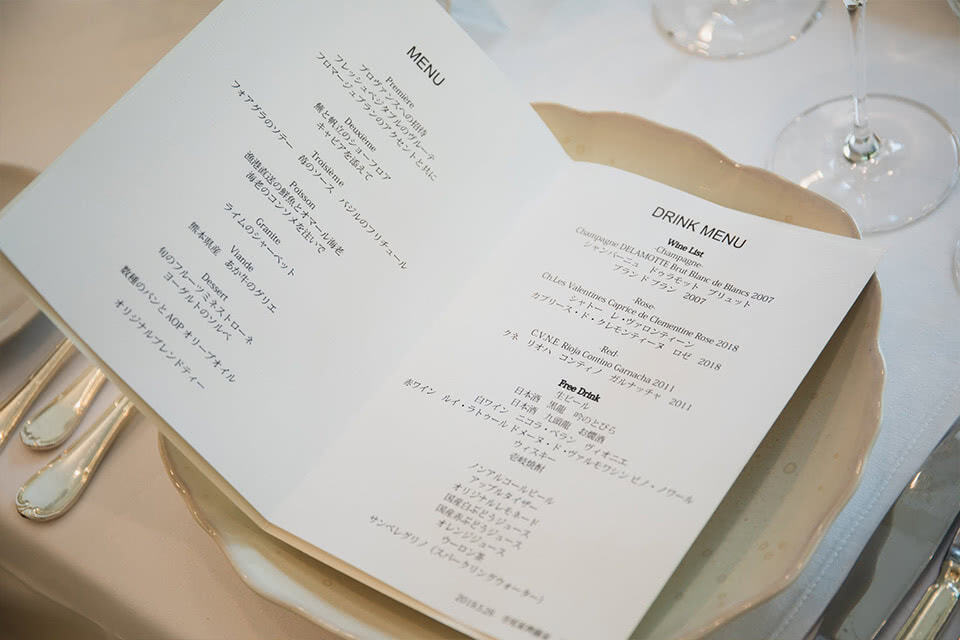 MENU
Première
プロヴァンスへの招待
フレッシュベジタブルのヴルーテ
フロマージュブランのアクセントと共に
Deuxième
鮪と帆立のショーフロア
キャビアを添えて
Troisième
フォアグラのソテー 苺のソース バジルのフリチュール
Poisson
漁港直送の鮮魚とオマール海老
海老のコンソメを注いで
Granite
ライムのシャーベット
Viande
熊本県産 あか牛のグリエ
Dessert
旬のフルーツミネストローネ
ヨーグルトのソルベ
数種のパンと AOP オリーブオイル
オリジナルブレンドティー
DRINK MENU
Wine List
-Champagne-
Champagne DELAMOTTE Brut Blanc de Blancs 2007
シャンパーニュ ドゥラモット ブリュット
ブラン ド ブラン 2007
Rose-
Ch.Les Valentines Caprice de Clementine Rose 2018
シャトー レ・ヴァロンティーン
カプリース・ド・クレモンティーヌ ロゼ 2018
Red-
C.V.N.E. Rioja Contino Garnacha 2011
クネ リオハ コンティノ ガルナッチャ 2011
Free Drink
生ビール
日本酒 黒龍 吟のとびら
日本酒 九頭龍 お燗酒
白ワイン ニコラ・ペラン ヴィオニエ
赤ワイン ルイ・ラトゥール ドメーヌ・ド・ヴァルモワシン ピノ・ノワール
ウィスキー
壱岐焼酎
ノンアルコールビール
アップルタイザー
オリジナルレモネード
国産白ぶどうジュース
国産赤ぶどうジュース
オレンジジュース
ウーロン茶
サンペレグリノ（スパークリングウォーター）
2019.5.26